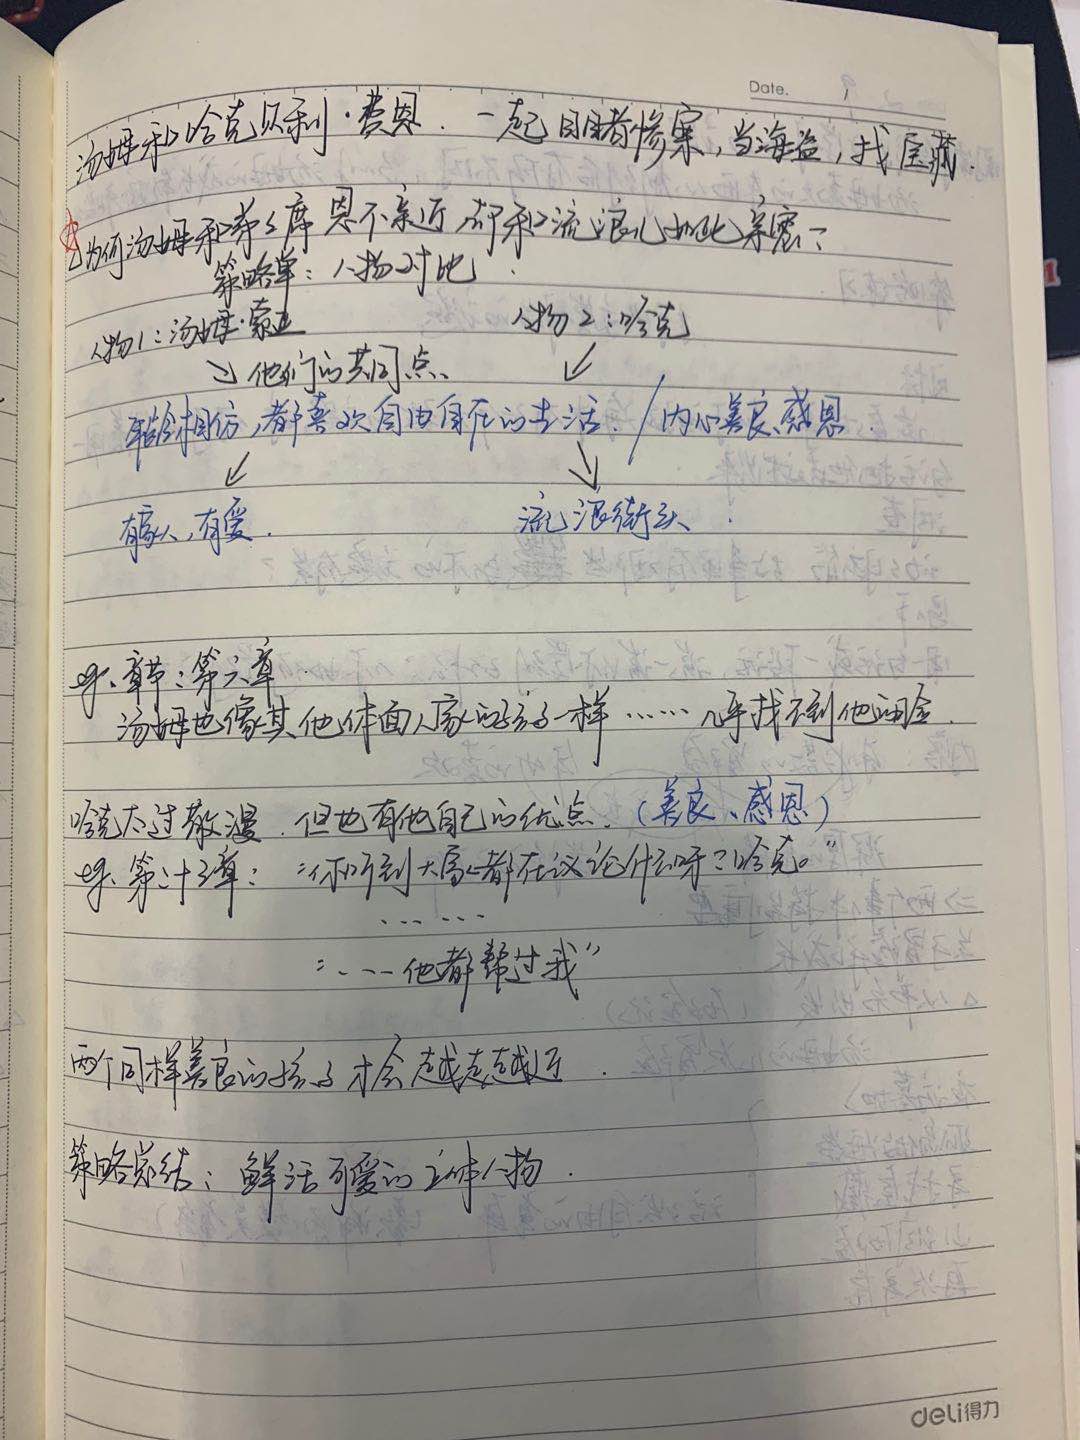 Date.
汤姆和哈克贝利·费恩.一起目睹惨案,当海盗,找宝藏.
为何汤姆和弟弟席恩不亲近,却和流浪儿如此亲密?
策略单:人物对比.
人物1:汤姆·索亚 人物2:哈克
↘他们的共同点. ↙
年龄相仿,都喜欢自由自在的生活./内心善良、感恩.
↙ ↘
有家人,有爱. 流浪街头.
章节:第六章
汤姆也像其他体面人家的孩子一样……几乎找不到他的
哈克太过散漫.但也有他自己的优点.(善良、感恩)
第二十三章:“你听到大家都在议论什么呀?哈克。”
……
“……他都帮过我”
两个同样善良的孩子才会越走越近.
策略总结:鲜活可爱的主体人物.
deli得力